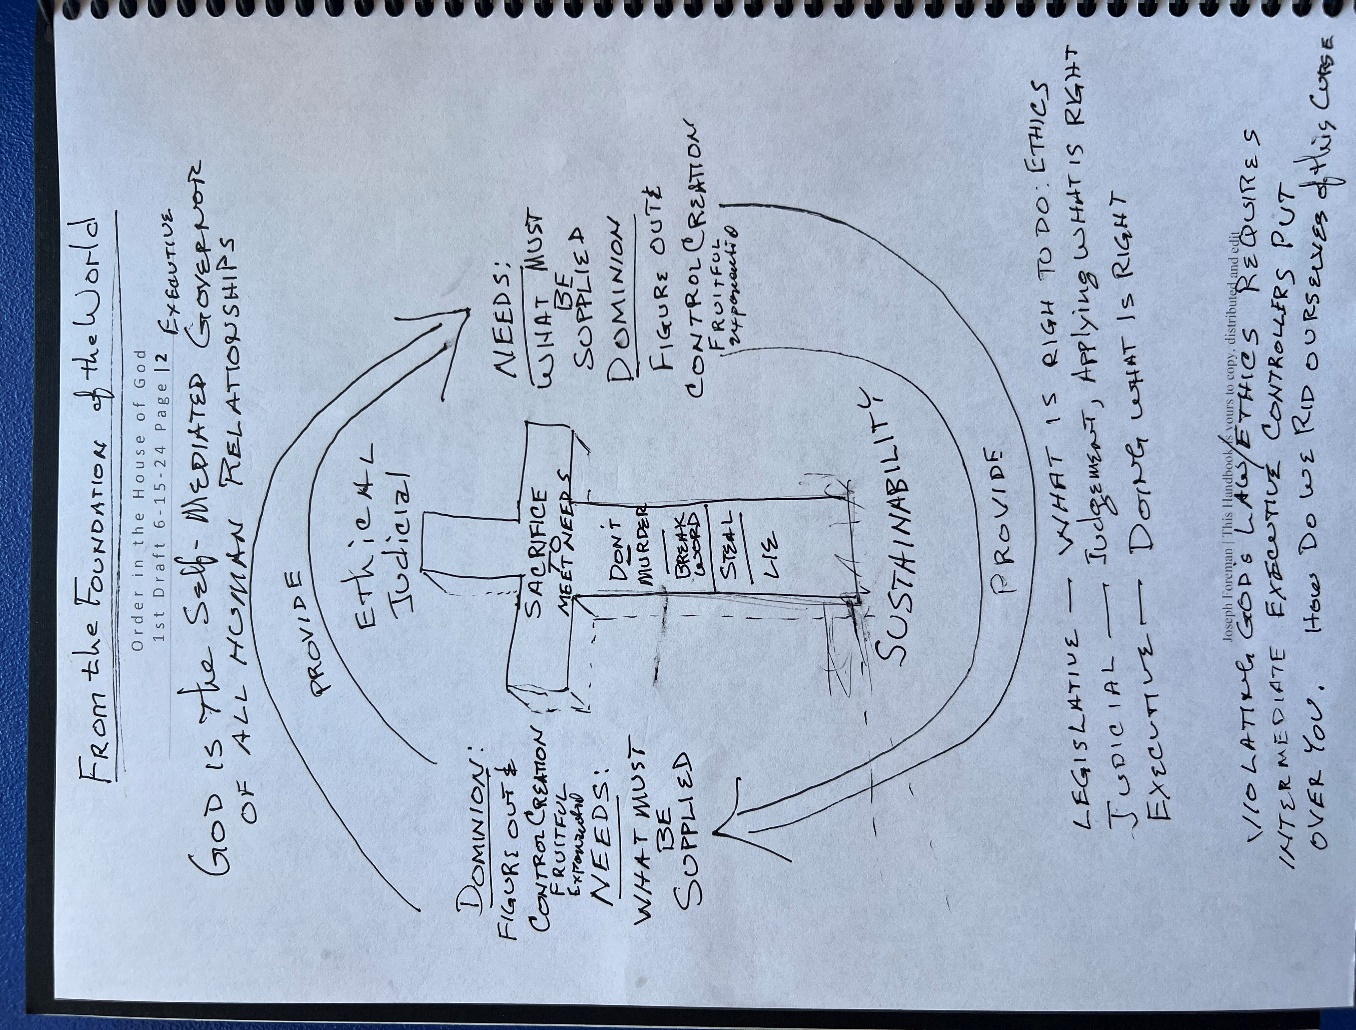 FROM the FOUNDATION of the World
Order in the House of God
1st Draft 6-15-24 Page | 2
EXECUTIVE
GOD IS the SELF-MEDIATED GOVERNOR
OF ALL HUMAN RELATIONSHIPS
PROVIDE
EthicAL
Judicial
DOMINION:
FIGURE OUT &
CONTROL CREATION
FRUITFUL
Exponential
NEEDS:
WHAT MUST
BE
SUPPLIED
SACRIFICE
TO
MEET NEEDS
DON'T
MURDER
BREAK
WORD
STEAL
LIE
NEEDS:
WHAT MUST
BE
SUPPLIED
DOMINION
FIGURE OUT &
CONTROL CREATION
FRUITFUL
exponential
SUSTAINABILITY
PROVIDE
LEGISLATIVE — WHAT IS RIGH TO DO: ETHICS
JUDICIAL — Judgement, Applying WHAT IS RIGHT
EXECUTIVE — DOING WHAT IS RIGHT
Joseph Foreman | This Handbook is yours to copy, distributed and edit
VIOLATING GODS LAW/ETHICS REQUIRES
INTERMEDIATE EXECUTIVE CONTROLLERS PUT
OVER YOU. HOW DO WE RID OURSELVES of this CURSE